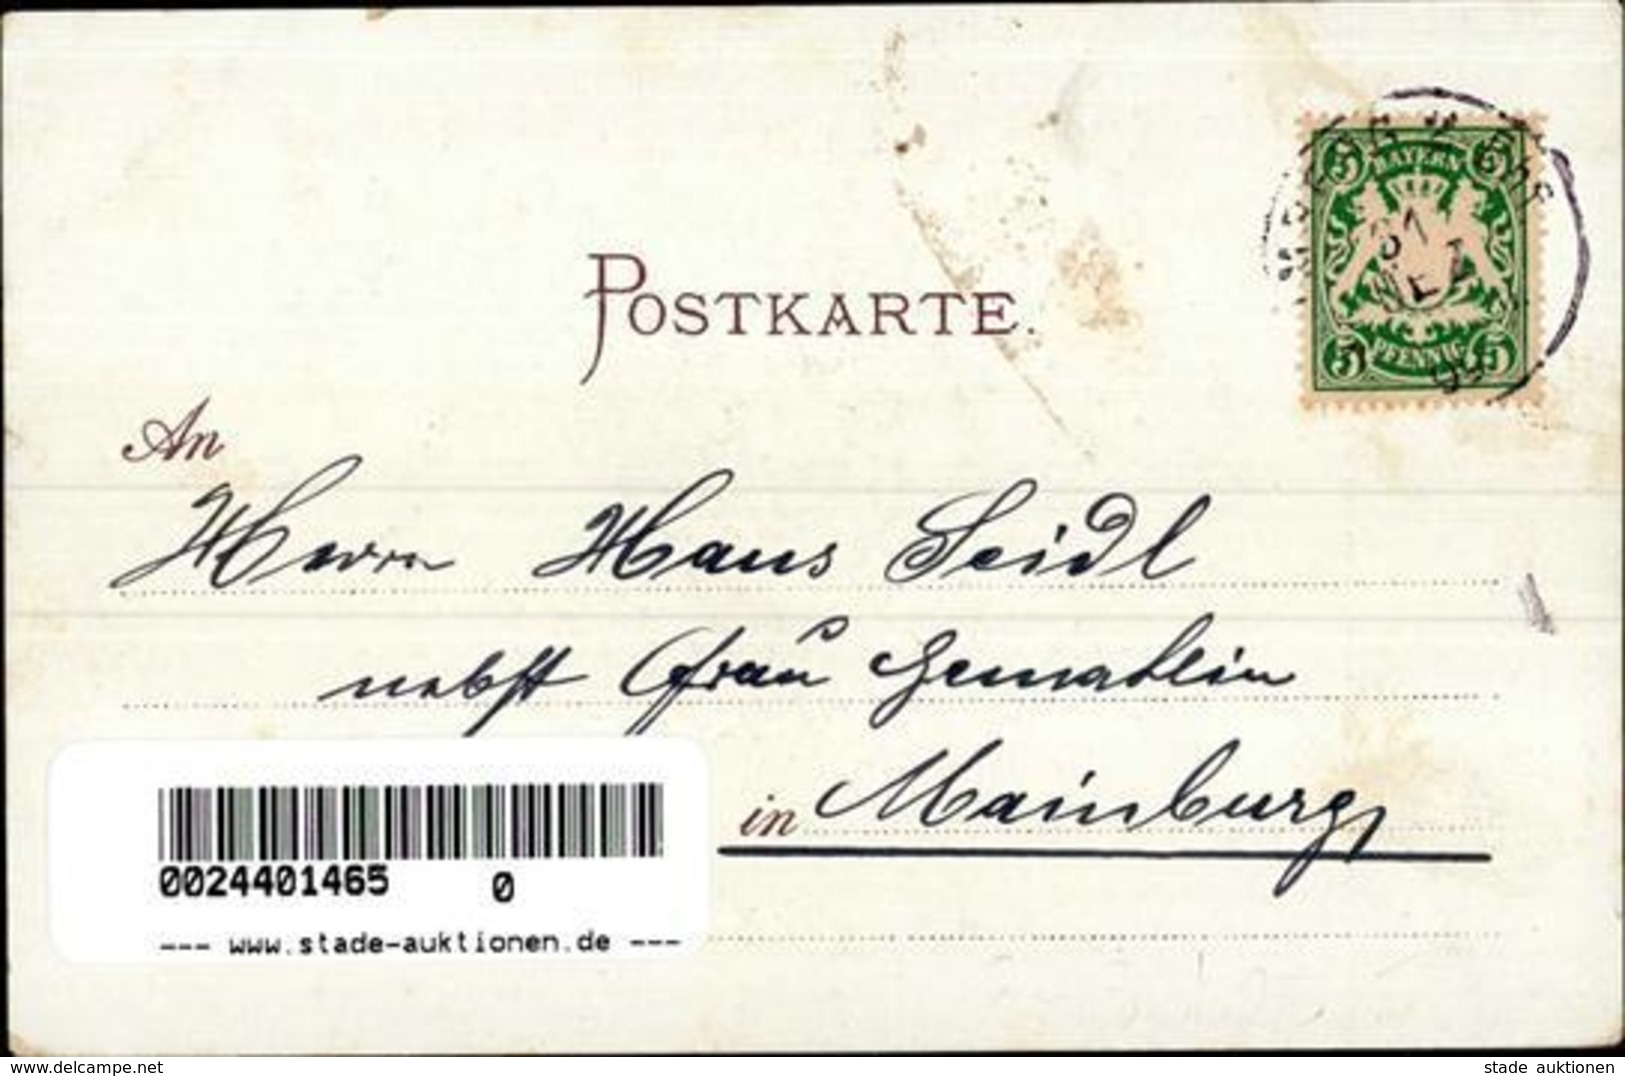 BAYERN
5 5
31
DEZ
99
5 PFENNIG 5
POSTKARTE.
An
Herrn Hans Seidl
nebst Frau Gemahlin
in Mainburg
0024401465 0
--- www.stade-auktionen.de ---
www.delcampe.net
stade auktionen